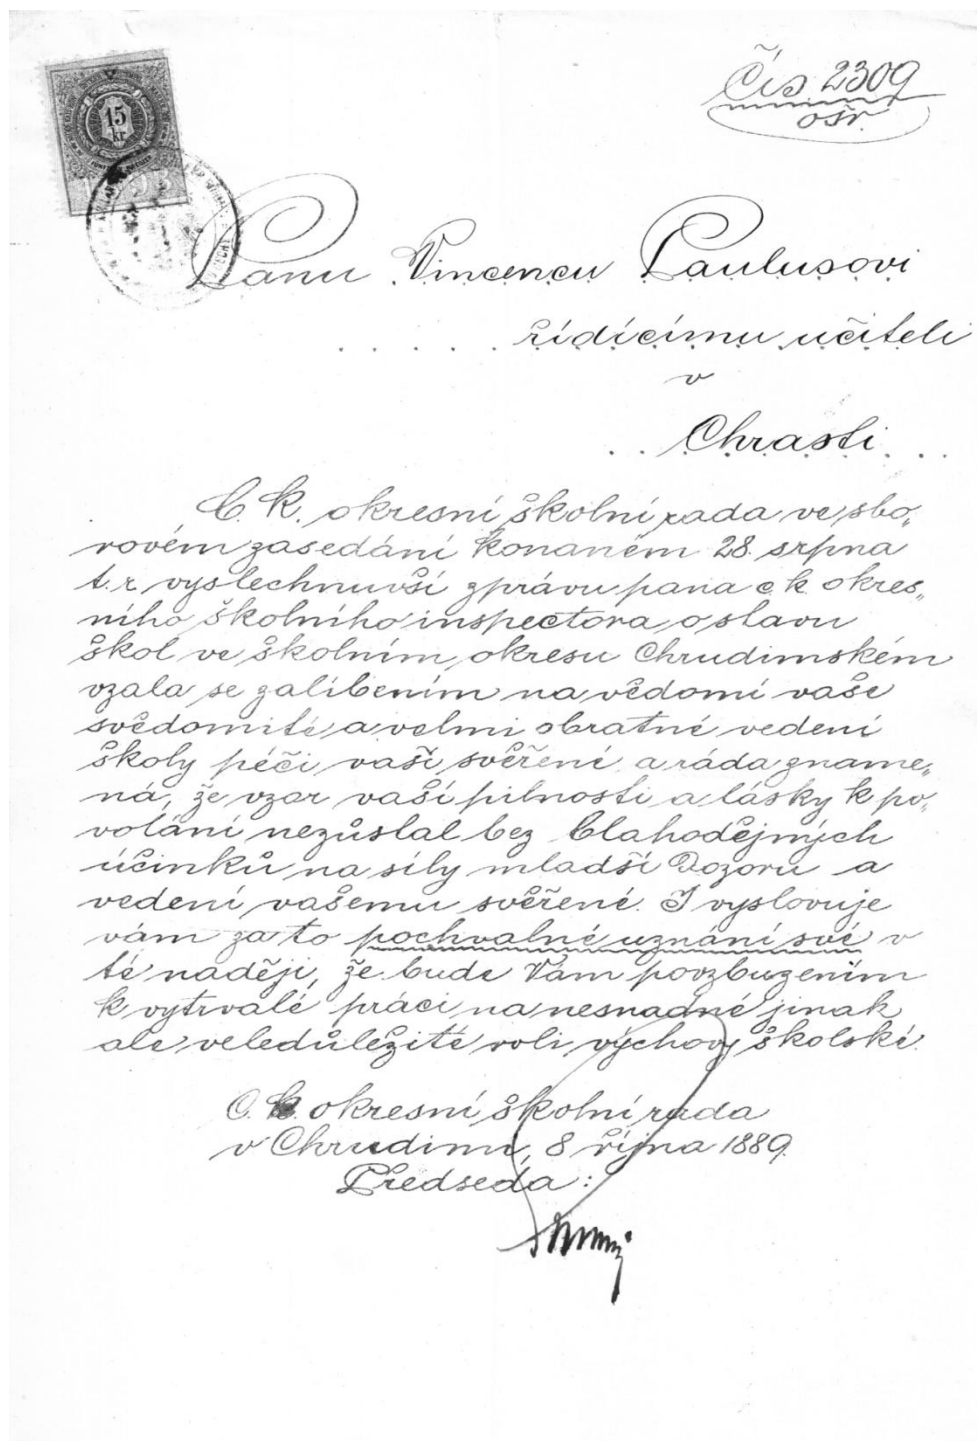 Čís 2309
ošr.
15
kr
Panu Vincencu Paulusovi
řídícímu učiteli
v
Chrasti
C. k. okresní školní rada ve sbo„
rovém zasedání konaném 28. srpna
t. r. vyslechnuvší zprávu pana c. k. okres„
ního školního inspectora o stavu
škol ve školním okresu Chrudimském
vzala se zalíbením na vědomí vaše
svědomité a velmi obratné vedení
školy péči vaší svěřené a ráda zname„
ná, že vzor vaší pilnosti a lásky k po„
volání nezůstal bez blahodějných
účinků na síly mladší dozoru a
vedení vašemu svěřené. I vyslovuje
vám za to pochvalné uznání své v
té naději, že bude Vám povzbuzením
k vytrvalé práci na nesnadné jinak
ale veledůležité roli výchovy školské.
C. k. okresní školní rada
v Chrudimi, 8 října 1889.
Předseda: